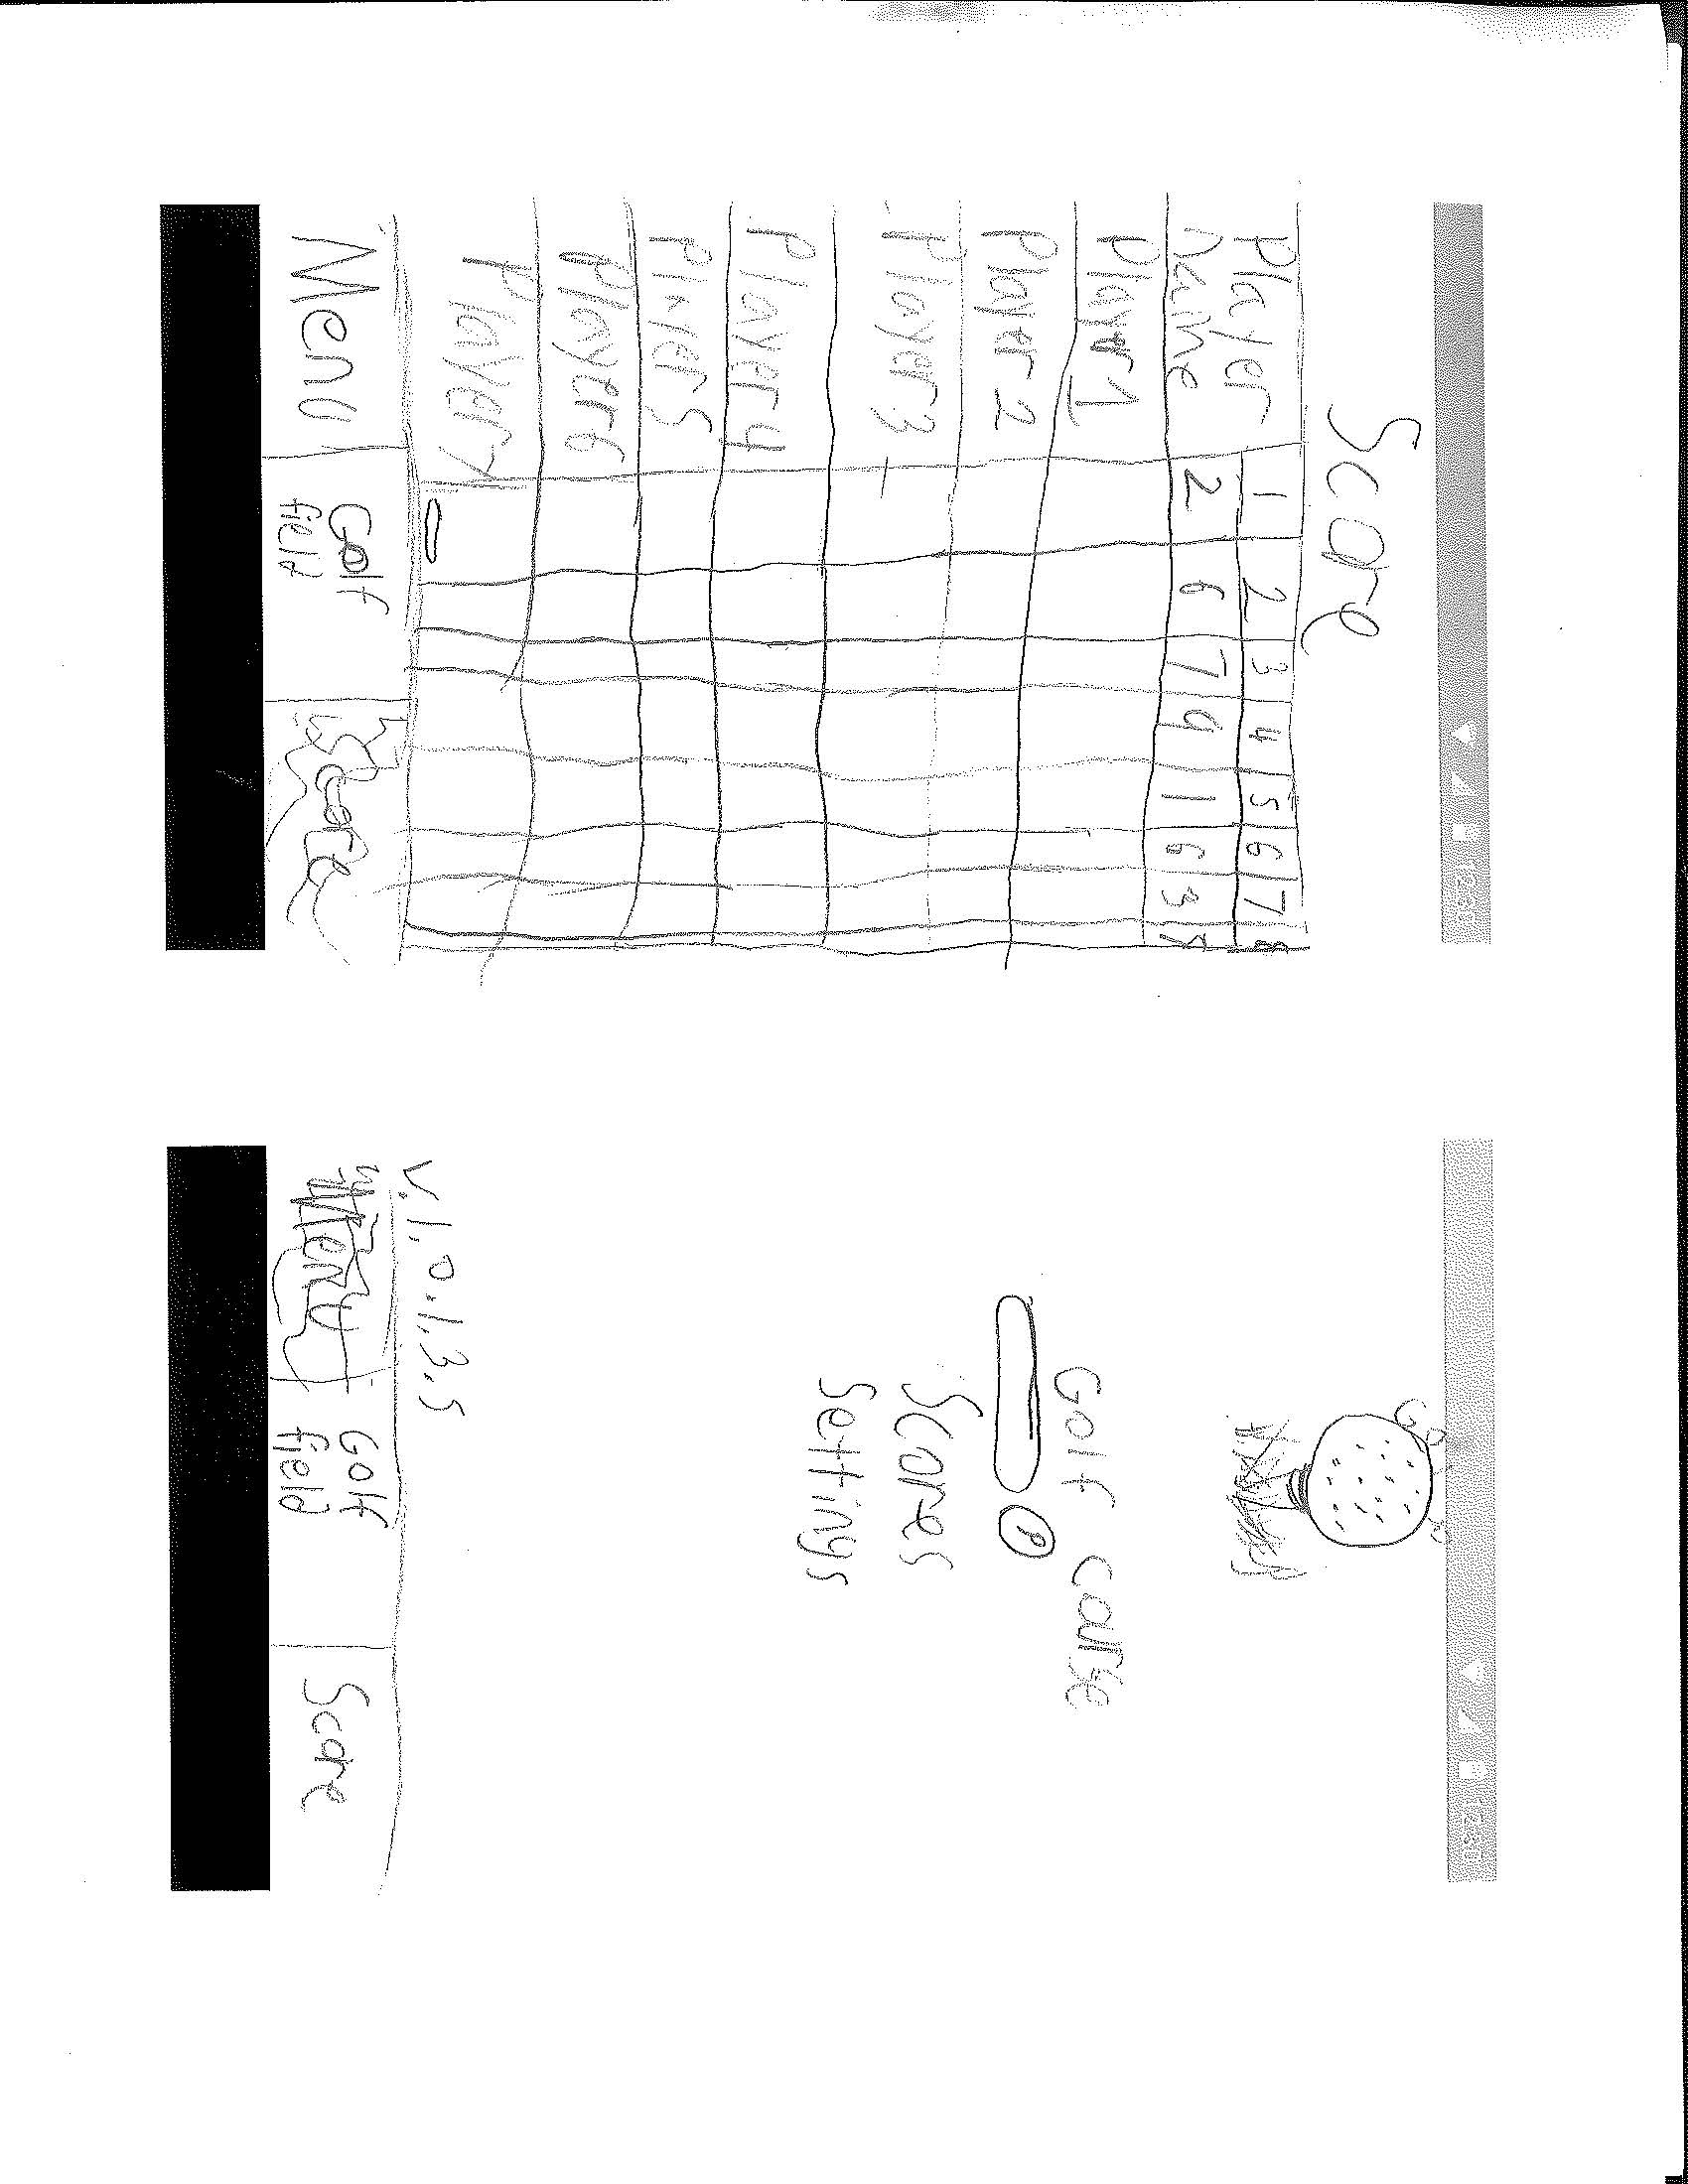 Score
Player 1 2 3 4 5 6 7 8
Name 2 6 7 9 1 6 3
Player 1
Player 2
Player 3
Player 4
Player 5
Player 6
Player 7
Menu Golf field Score
Golf Carse
P
Scores
Settings
V.1.0.1.3.5
Menu Golf field Score